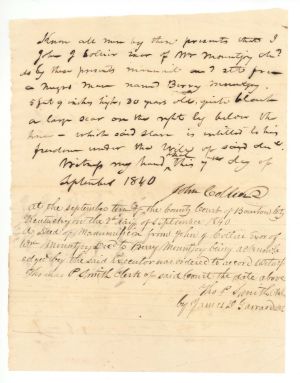 Know all men by these presents that I
John G Collier exor of Wm Mountjoy decd
do by these presents manumit and set free
a Negro Man named Berry Mountjoy
5 feet 9 inches high, 30 years old, quite black
a large scar on the right leg below the
knee - which said slave is entitled to his
freedom under the Will of said decd.
Witness my hand this day of
September 1840
John Collier
At the September term of the County Court of Bourbon City
Kentucky on the day of September 1840
A Deed of Manumission from John G Collier exor of
Wm Mountjoy Decd to Berry Mountjoy being acknowl
edged by the said Executor was ordered to record
Thomas P Smith Clerk of said Court the date above
Tho. P. Smith Clk
by James D